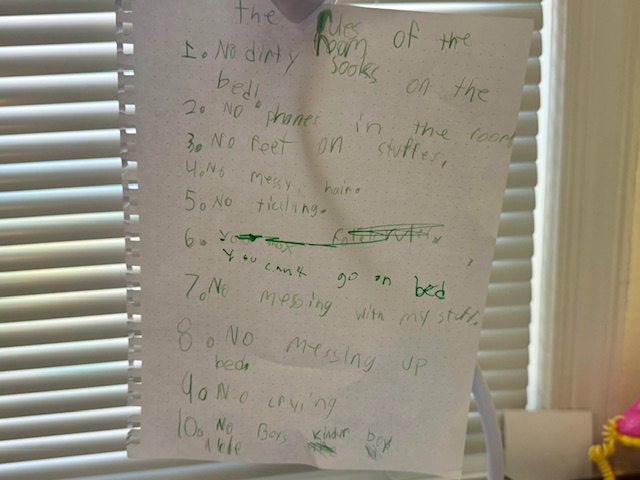 the rules of the
room
1. No dirty socks on the
bed!
2. No phones in the room
3. No feet on stuffes.
4. No messy hair.
5. No ticiling.
6. You
You can't go on bed
7. No messing with my stuff.
8. No messing up
bed.
9. No crying
10. No Bois